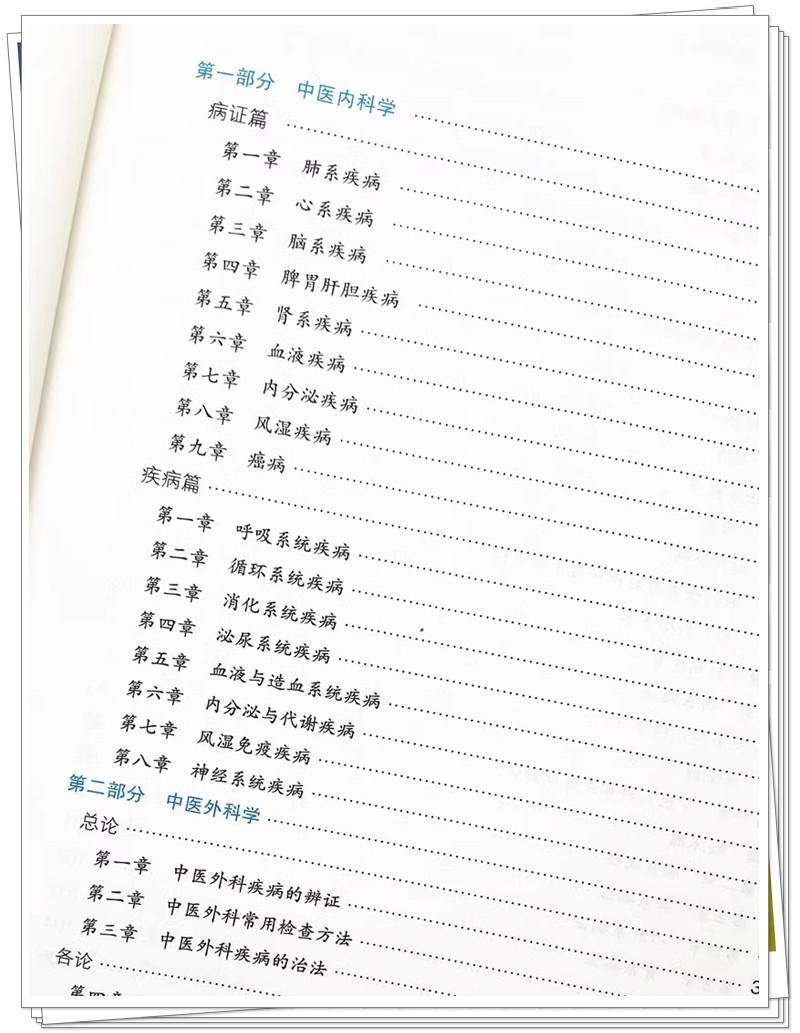 第一部分 中医内科学
病证篇
第一章 肺系疾病
第二章 心系疾病
第三章 脑系疾病
第四章 脾胃肝胆疾病
第五章 肾系疾病
第六章 血液疾病
第七章 内分泌疾病
第八章 风湿疾病
第九章 癌病
疾病篇
第一章 呼吸系统疾病
第二章 循环系统疾病
第三章 消化系统疾病
第四章 泌尿系统疾病
第五章 血液与造血系统疾病
第六章 内分泌与代谢疾病
第七章 风湿免疫疾病
第八章 神经系统疾病
第二部分 中医外科学
总论
第一章 中医外科疾病的辨证
第二章 中医外科常用检查方法
第三章 中医外科疾病的治法
各论
3